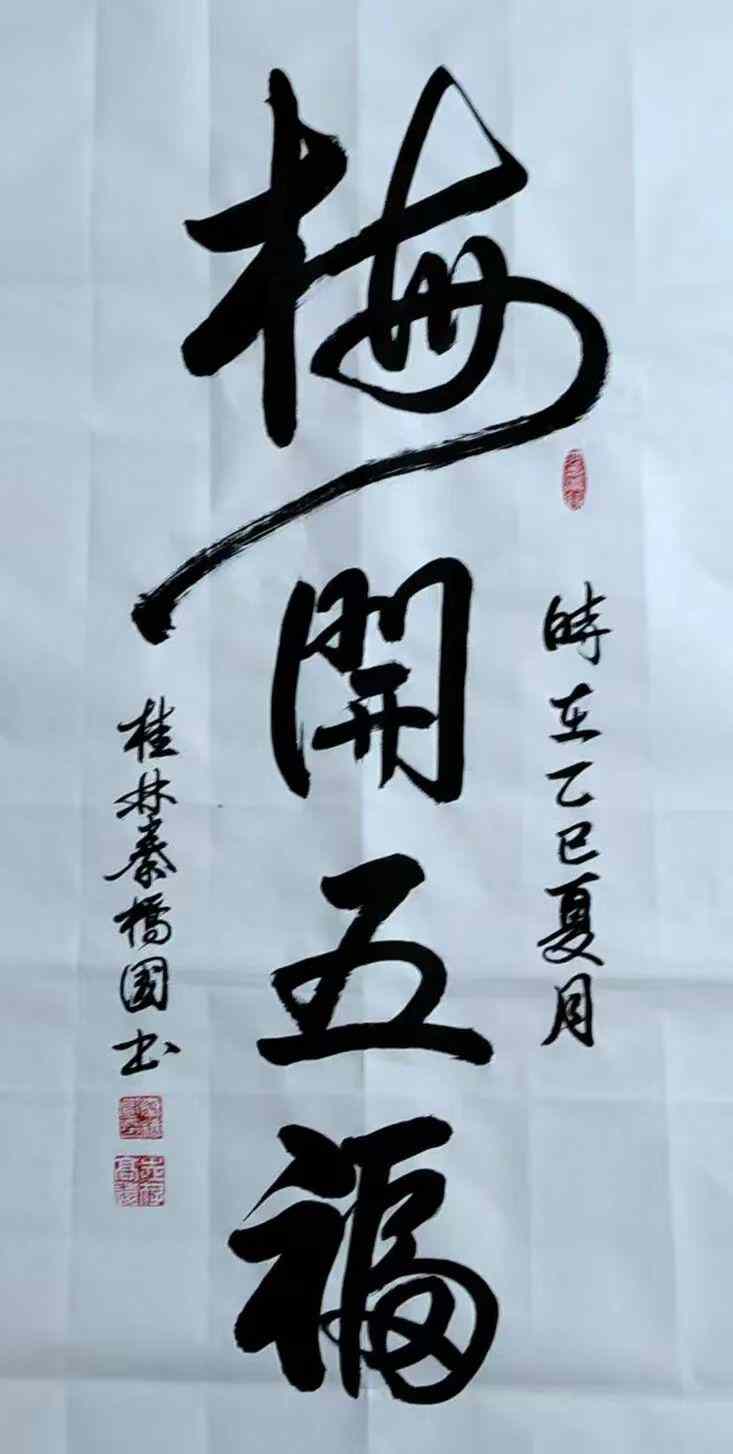 時在乙巳夏月
梅開五福
桂林秦橋國书